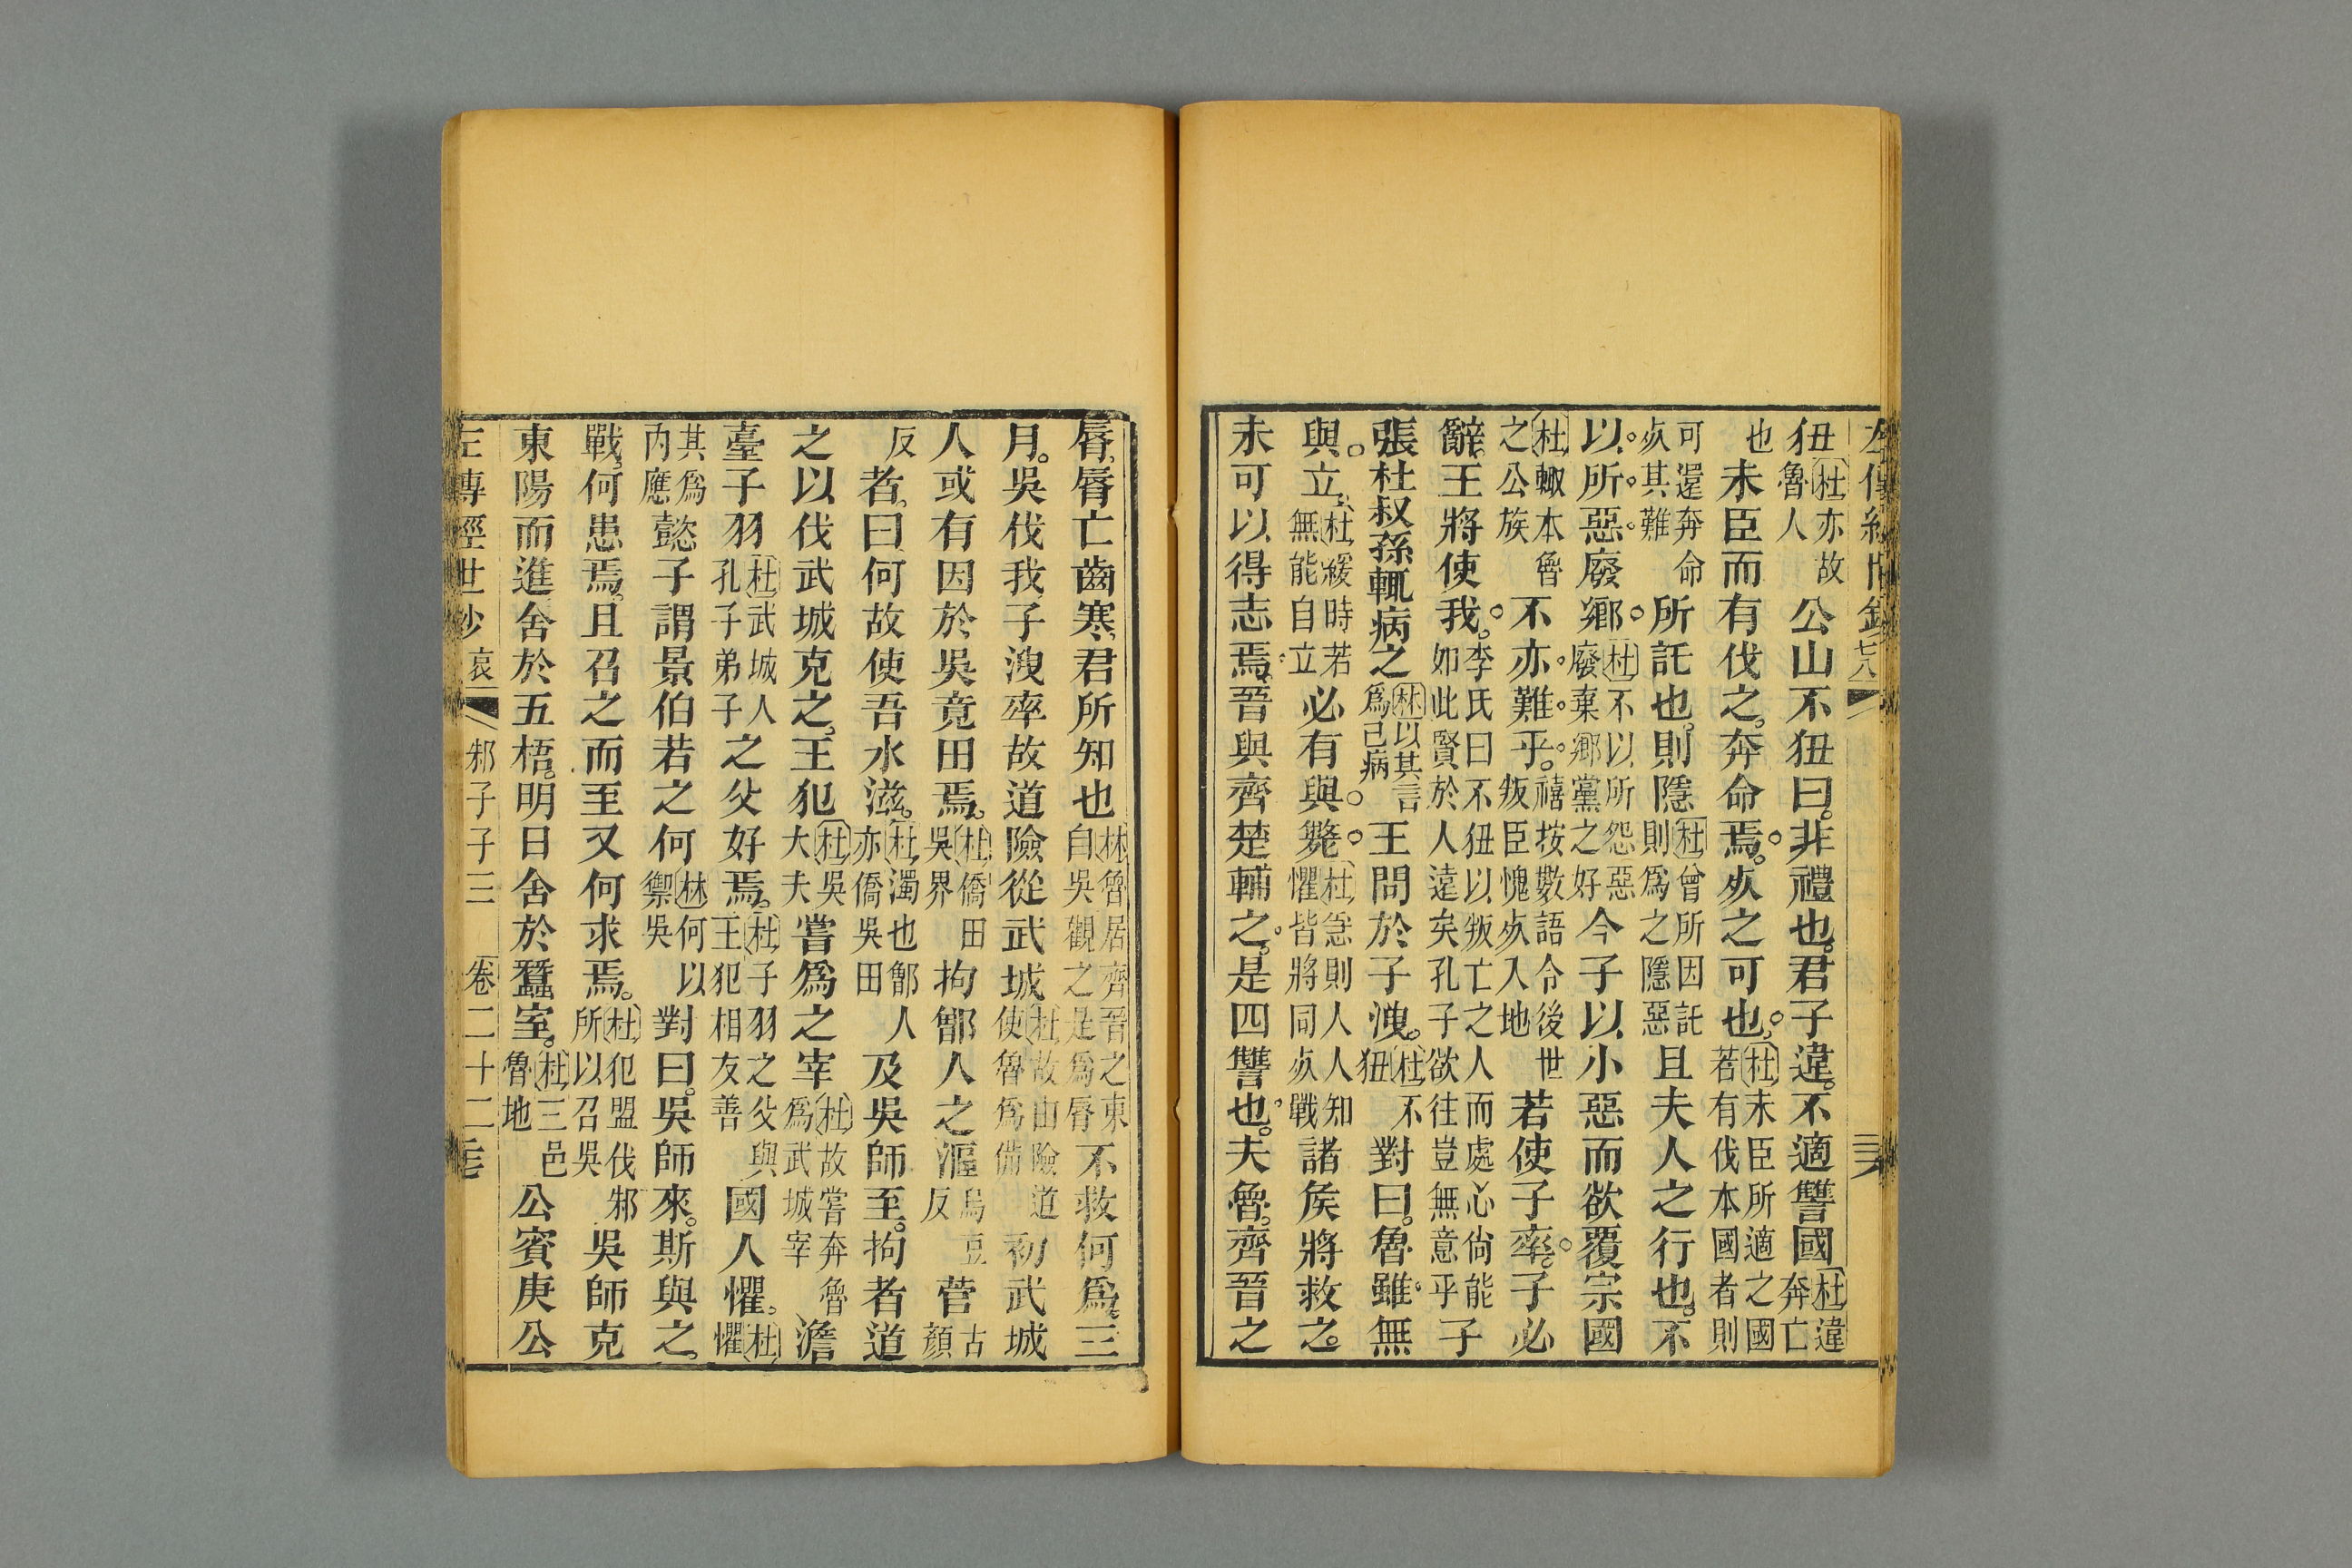 狃杜亦故魯人公山不狃曰非禮也君子違不適讐國杜違奔亡
也未臣而有伐之奔命焉㱙之可也杜未臣所適之國若有伐本國者則
可還奔命㱙其難所託也則隱杜曾所因託則爲之隱惡且夫人之行也不
以所惡廢鄉杜不以所怨惡廢棄鄉黨之好今子以小惡而欲覆宗國
杜輙本魯之公族不亦難乎禧按數語令後世叛臣愧㱙入地若使子率子必
辭王將使我李氏曰不狃以叛亡之人而處心尙能如此賢於人遠矣孔子欲往豈無意乎子
張杜叔孫輒病之林以其言爲己病王問於子洩杜不狃對曰魯雖無
與立杜緩時若無能自立必有與斃杜急則人人知懼皆將同㱙戰諸矦將救之
未可以得志焉晉與齊楚輔之是四讐也夫魯齊晉之
脣脣亡齒寒君所知也林魯居齊晉之東自吳觀之是爲脣不救何爲三
月吳伐我子洩率故道險從武城杜故由險道使魯爲備初武城
人或有因於吳竟田焉杜僑田吳界拘鄫人之漚烏豆反菅古顏
反者曰何故使吾水滋杜濁也鄫人亦僑吳田及吳師至拘者道
之以伐武城克之王犯杜吳大夫嘗爲之宰杜故嘗奔魯爲武城宰澹
臺子羽杜武城人孔子弟子之父好焉杜子羽之父與王犯相友善國人懼杜懼
其爲內應懿子謂景伯若之何林何以禦吳對曰吳師來斯與之
戰何患焉且召之而至又何求焉杜犯盟伐邾所以召吳吳師克
東陽而進舍於五梧明日舍於蠶室杜三邑魯地公賓庚公
左傳經世鈔 哀 邾子子三 卷二十二